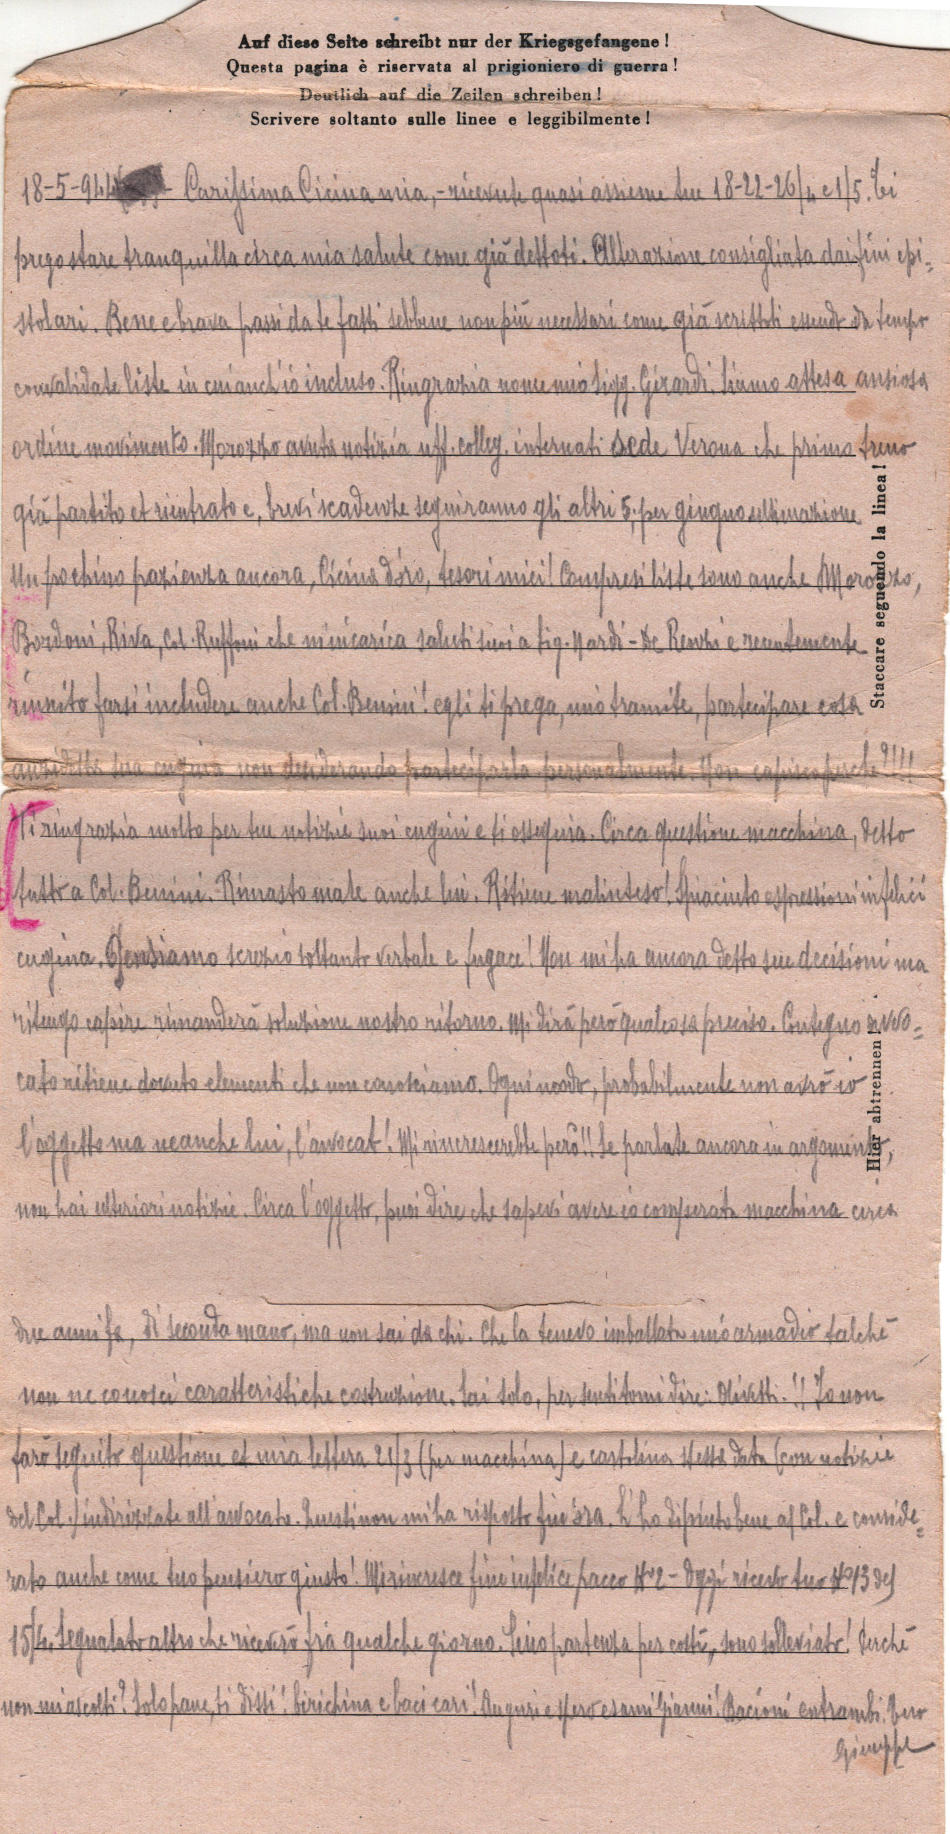 Auf diese Seite schreibt nur der Kriegsgefangene!
Questa pagina è riservata al prigioniero di guerra!
Deutlich auf die Zeilen schreiben!
Scrivere soltanto sulle linee e leggibilmente!
18-5-944 Carissima Cicina mia, - ricevute quasi assieme tue 18-22-26/4 e 1/5. Ti
prego stare tranquilla circa mia salute come già dettoti. Alterazione consigliata dai fini epi=
stolari. Bene e brava passi da te fatti sebbene non più necessari come già scrittoti essendo da tempo
convalidate liste in cui anch'io incluso. Ringrazia nome mio sigg. Girardi. Siamo attesa ansiosa
ordine movimento. Morozzo avuta notizia uff. colleg. internati sede Verona che primo treno
già partito et rientrato e, brevi scadenze seguiranno gli altri 5, per giugno ultimazione
Un pochino pazienza ancora, Cicina d'oro, tesori miei! Compresi liste sono anche Morozzo,
Bordoni, Riva, Col. Ruffoni che m'incarica saluti suoi a sig. Nardi - De Renzi e recentemente
riuscito farsi includere anche Col. Bennini! egli ti prega, mio tramite, partecipare cosa
anzidetta sua cugina non desiderando parteciparla personalmente. Non capisco perchè?!!!
Ti ringrazia molto per tue notizie suoi cugini e ti ossequia. Circa questione macchina, detto
tutto a Col. Bennini. Rimasto male anche lui. Ritiene malinteso! Spiaciuto espressioni infelici
cugina. Pensiamo screzio soltanto verbale e fugace! Non mi ha ancora detto sue decisioni ma
ritengo capire rimanderà soluzione nostro ritorno. Mi dirà però qualcosa preciso. Contegno avvo=
cato ritiene dovuto elementi che non conosciamo. Ogni modo, probabilmente non avrò io
l'oggetto ma neanche lui, l'avvocat! Mi rincrescerebbe però!! Se parlate ancora in argomento,
non hai ulteriori notizie. Circa l'oggetto, puoi dire che sapevi avere io comperata macchina circa
due anni fa, di seconda mano, ma non sai da chi. Che la tenevo imballata mio armadio talchè
non ne conosci caratteristiche costruzione. Sai solo, per sentitomi dire: Olivetti.!! Io non
farò seguito questione et mia lettera 21/3 (per macchina) e cartolina stessa data (con notizie
del Col.) indirizzate all'avvocato. Questi non mi ha risposto fin'ora. L'ho dipinto bene al Col. e conside=
rato anche come tuo pensiero giusto! Mi rincresce fine infelice pacco N°2 - Oggi ricevo tuo N°13 del
15/4. Segnalato altro che riceverò fra qualche giorno. Sino partenza per costì, sono sollevato! Perchè
non mi ascolti? Solo pane, ti dissi! birichina e baci cari! Auguri e spero esami Gianni! Bacioni entrambi. Vero
Giuseppe
Staccare seguendo la linea!
Hier abtrennen!